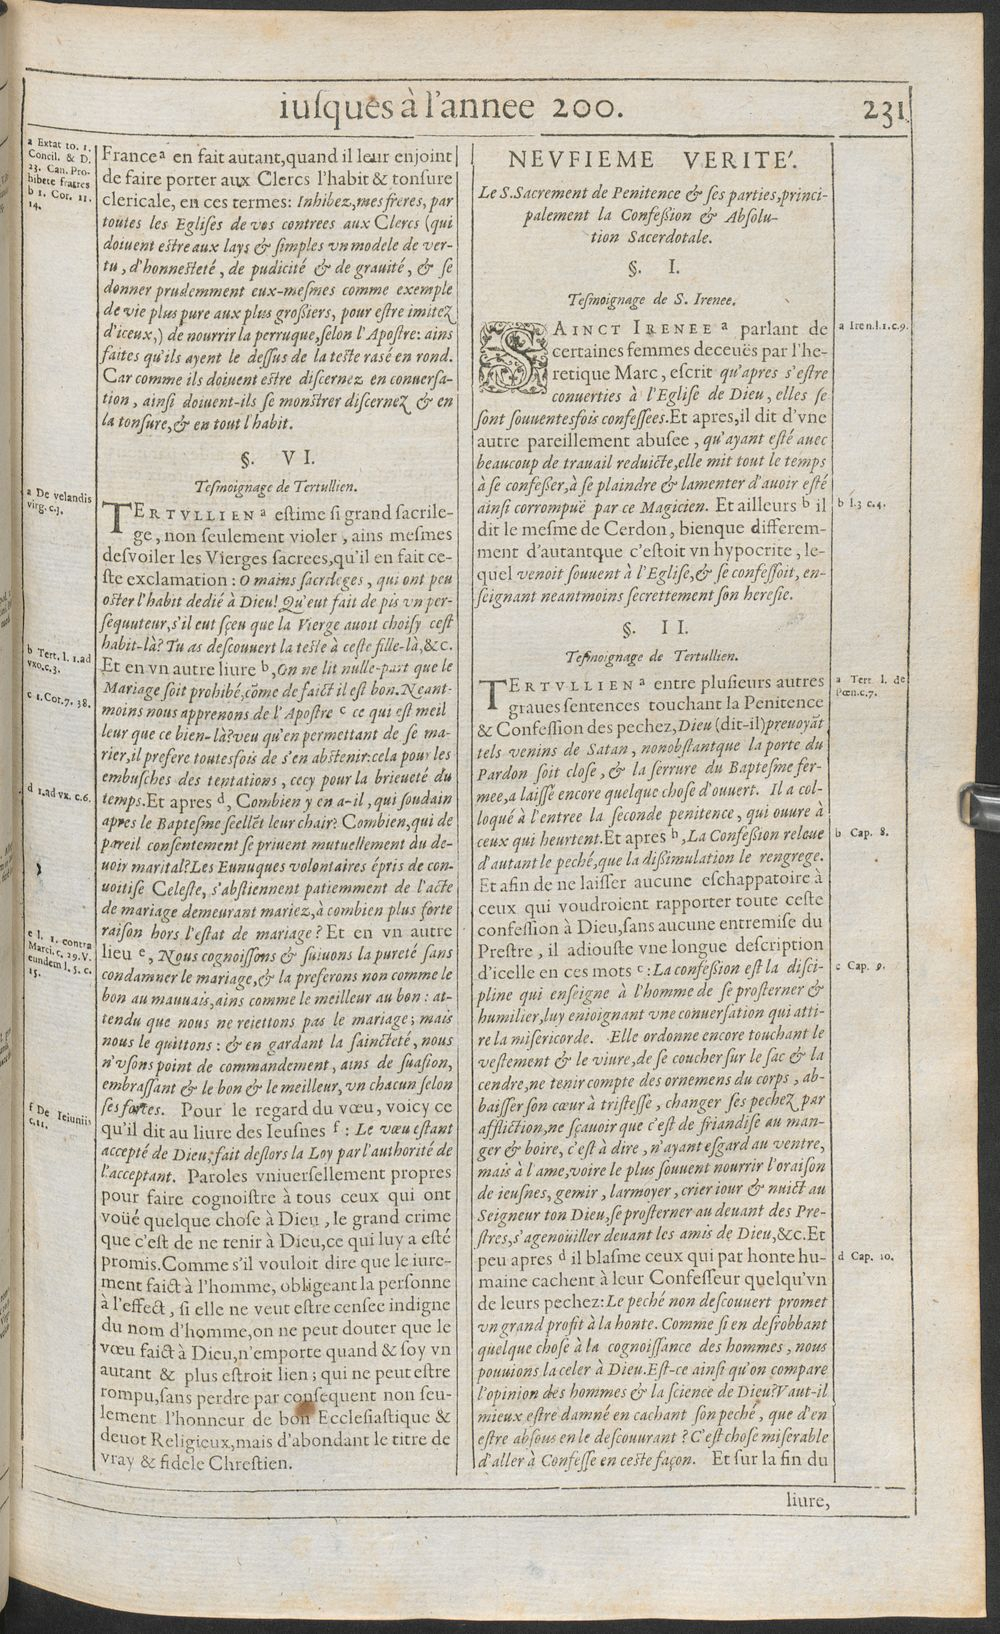 iuſques à l'annee 200.
231
a Extat to. 1.
Concil. & D.
23. Can. Pro-
hibete fratres
b 1. Cor. 11.
14.
Franceᵃ en fait autant,quand il leur enjoint
de faire porter aux Clercs l'habit & tonſure
clericale, en ces termes: Inhibez,mes freres, par
toutes les Egliſes de vos contrees aux Clercs (qui
doiuent eſtre aux lays & ſimples vn modele de ver-
tu, d'honneſteté, de pudicité & de grauité, & ſe
donner prudemment eux-meſmes comme exemple
de vie plus pure aux plus groſſiers, pour eſtre imitez
d'iceux,) de nourrir la perruque,ſelon l'Apoſtre: ains
faites qu'ils ayent le deſſus de la teſte rasé en rond.
Car comme ils doiuent eſtre diſcernez en conuerſa-
tion, ainſi doiuent-ils ſe monſtrer diſcernez & en
la tonſure,& en tout l'habit.
§. VI.
Teſmoignage de Tertullien.
a De velandis
virg. c.3.
TERTVLLIENᵃ eſtime ſi grand ſacrile-
ge, non ſeulement violer, ains meſmes
deſvoiler les Vierges ſacrees,qu'il en fait ce-
ſte exclamation: O mains ſacrileges, qui ont peu
oſter l'habit dedié à Dieu! Qu'eut fait de pis vn per-
ſequuteur,s'il eut ſçeu que la Vierge auoit choiſy ceſt
habit-là? Tu as deſcouuert la teſte à ceſte fille-là,&c.
b Tert. l. 1.ad
vxo.c.3.
Et en vn autre liure ᵇ,On ne lit nulle-part que le
Mariage ſoit prohibé,cōme de faict il eſt bon.Neant-
c 1.Cor.7. 38.
moins nous apprenons de l'Apoſtre ᶜ ce qui eſt meil
leur que ce bien-là?veu qu'en permettant de ſe ma-
rier,il prefere toutesfois de s'en abſtenir:cela pour les
embuſches des tentations, cecy pour la brieueté du
d 1.ad vx. c.6.
temps.Et apres ᵈ, Combien y en a-il, qui ſoudain
apres le Bapteſme ſcellēt leur chair? Combien,qui de
pareil conſentement ſe priuent mutuellement du de-
uoir marital?Les Eunuques volontaires épris de con-
uoitiſe Celeſte, s'abſtiennent patiemment de l'acte
de mariage demeurant mariez,à combien plus forte
raiſon hors l'eſtat de mariage? Et en vn autre
e l. 1. contra
Marci.c. 29.V.
eundem l. 5. c.
15.
lieu ᵉ, Nous cognoiſſons & ſuiuons la pureté ſans
condamner le mariage,& la preferons non comme le
bon au mauuais,ains comme le meilleur au bon: at-
tendu que nous ne reiettons pas le mariage; mais
nous le quittons: & en gardant la ſaincteté, nous
n'vſons point de commandement, ains de ſuaſion,
embraſſant & le bon & le meilleur, vn chacun ſelon
f De Ieiuniis
c.11.
ſes forces. Pour le regard du vœu, voicy ce
qu'il dit au liure des Ieuſnes ᶠ: Le vœu eſtant
accepté de Dieu,fait deſlors la Loy par l'authorité de
l'acceptant. Paroles vniuerſellement propres
pour faire cognoiſtre à tous ceux qui ont
voüé quelque choſe à Dieu, le grand crime
que c'eſt de ne tenir à Dieu,ce qui luy a eſté
promis.Comme s'il vouloit dire que le iure-
ment faict à l'homme, obligeant la perſonne
à l'effect, ſi elle ne veut eſtre cenſee indigne
du nom d'homme,on ne peut douter que le
vœu faict à Dieu,n'emporte quand & ſoy vn
autant & plus eſtroit lien; qui ne peut eſtre
rompu,ſans perdre par conſequent non ſeu-
lement l'honneur de bon Eccleſiaſtique &
deuot Religieux,mais d'abondant le titre de
vray & fidele Chreſtien.
NEVFIEME VERITE'.
Le S.Sacrement de Penitence & ſes parties,princi-
palement la Confeſſion & Abſolu-
tion Sacerdotale.
§. I.
Teſmoignage de S. Irenee.
SAINCT IRENEE ᵃ parlant de
a Iren.l.1.c.9.
certaines femmes deceuës par l'he-
retique Marc, eſcrit qu'apres s'eſtre
conuerties à l'Egliſe de Dieu, elles ſe
ſont ſouuentesfois confeſſees.Et apres,il dit d'vne
autre pareillement abuſee, qu'ayant eſté auec
beaucoup de trauail reduicte,elle mit tout le temps
à ſe confeſſer,à ſe plaindre & lamenter d'auoir eſté
ainſi corrompuë par ce Magicien. Et ailleurs ᵇ il
b l.3 c.4.
dit le meſme de Cerdon, bienque differem-
ment d'autantque c'eſtoit vn hypocrite, le-
quel venoit ſouuent à l'Egliſe,& ſe confeſſoit, en-
ſeignant neantmoins ſecrettement ſon hereſie.
§. II.
Teſmoignage de Tertullien.
TERTVLLIEN ᵃ entre pluſieurs autres
a Tert. l. de
Pœn.c.7.
graues ſentences touchant la Penitence
& Confeſſion des pechez, Dieu (dit-il)preuoyāt
tels venins de Satan, nonobſtantque la porte du
Pardon ſoit cloſe, & la ſerrure du Bapteſme fer-
mee,a laiſſé encore quelque choſe d'ouuert. Il a col-
loqué à l'entree la ſeconde penitence, qui ouure à
ceux qui heurtent.Et apres ᵇ, La Confeſſion releue
b Cap. 8.
d'autant le peché,que la diſſimulation le rengrege.
Et afin de ne laiſſer aucune eſchappatoire à
ceux qui voudroient rapporter toute ceſte
confeſſion à Dieu,ſans aucune entremiſe du
Preſtre, il adiouſte vne longue deſcription
d'icelle en ces mots ᶜ: La confeſſion eſt la diſci-
c Cap. 9.
pline qui enſeigne à l'homme de ſe proſterner &
humilier,luy enioignant vne conuerſation qui atti-
re la miſericorde. Elle ordonne encore touchant le
veſtement & le viure,de ſe coucher ſur le ſac & la
cendre,ne tenir compte des ornemens du corps, ab-
baiſſer ſon cœur à triſteſſe, changer ſes pechez par
affliction,ne ſçauoir que c'eſt de friandiſe au man-
ger & boire, c'eſt à dire, n'ayant eſgard au ventre,
mais à l'ame,voire le plus ſouuent nourrir l'oraiſon
de ieuſnes, gemir, larmoyer, crier iour & nuict au
Seigneur ton Dieu,ſe proſterner au deuant des Pre-
ſtres,s'agenoüiller deuant les amis de Dieu,&c.Et
peu apres ᵈ il blaſme ceux qui par honte hu-
d Cap. 10.
maine cachent à leur Confeſſeur quelqu'vn
de leurs pechez:Le peché non deſcouuert promet
vn grand profit à la honte. Comme ſi en deſrobbant
quelque choſe à la cognoiſſance des hommes, nous
pouuions la celer à Dieu.Eſt-ce ainſi qu'on compare
l'opinion des hommes & la ſcience de Dieu?Vaut-il
mieux eſtre damné en cachant ſon peché, que d'en
eſtre abſous en le deſcouurant? C'eſt choſe miſerable
d'aller à Confeſſe en ceſte façon. Et ſur la fin du
liure,